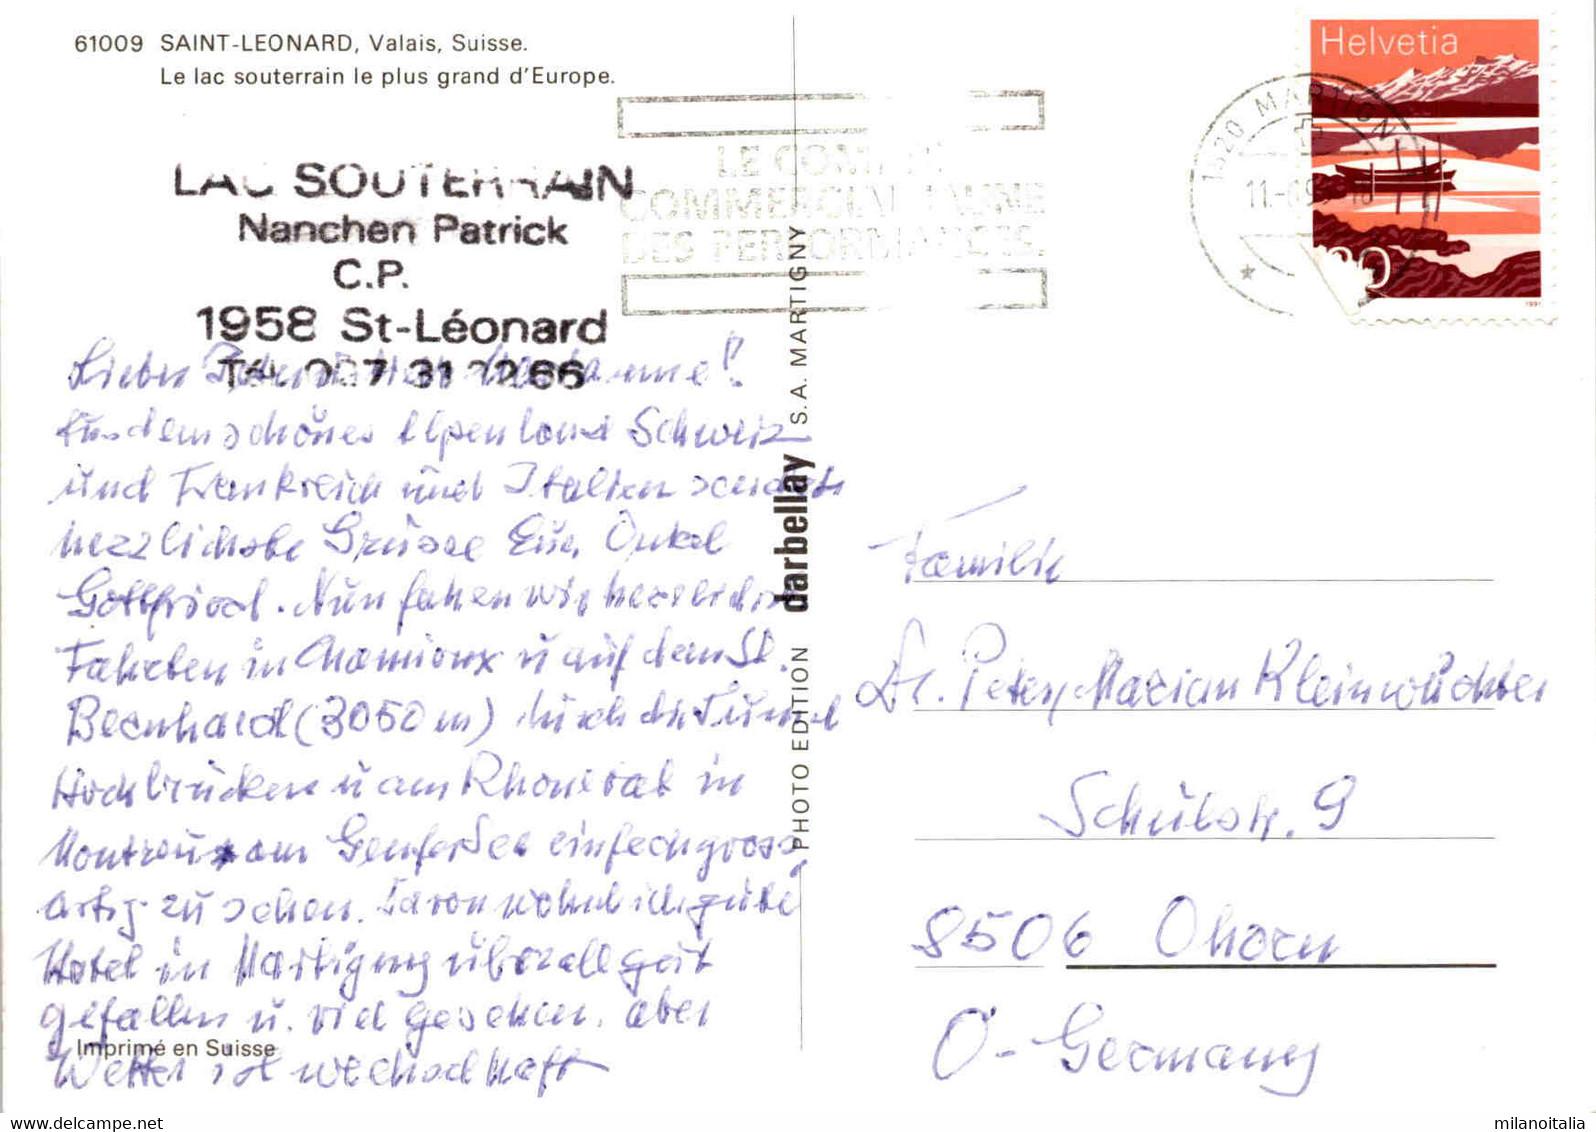 61009 SAINT-LEONARD, Valais, Suisse.
Le lac souterrain le plus grand d'Europe.
LAC SOUTERRAIN
Nanchen Patrick
C.P.
1958 St-Léonard
Tél. 027 31 2266
Helvetia
80
1991
1920 MARTIGNY
11.-09
LE COMPTE
COMMERCIAL JAUNE
DES PERFORMANCES.
Lieber Peter Marianne!
Aus dem schönen Alpenland Schweiz
und Frankreich und Italien sendet
herzlichste Grüsse Euer Onkel
Gottfried. Nun fahren wir
Fahrten in Chamioux u auf dem St.
Bernhard (3050 m) durch die Tunnel
Hochbrücken u am Rhonetal in
Montreux am Genfersee einfach gross
artig zu sehen. gute
Hotel in Martigny überall gut
gefallen u. viel gesehen. aber
Wetter ist wechselhaft
Imprimé en Suisse
PHOTO EDITION darbellay S.A. MARTIGNY
Familie
Dr. Peter, Marian Kleinwächter
Schulstr. 9
8506 Ohorn
O-Germany
milanoitalia